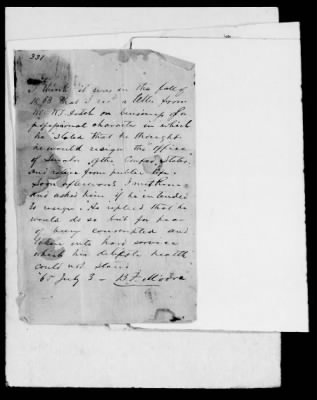 331
I think it was in the fall of
1863 that I rec'd a letter from
Mr. W. T. Dortch on business of a
professional character in which
he stated that he thought
he would resign the office
of Senator of the Confed. States
and retire from public life.
Soon afterwards I met him
and asked him if he intended
to resign. He replied that he
would do so but for fear
of being conscripted and
taken into hard service
which his delicate health
could not stand
'65 July 3 - B. F. Moore